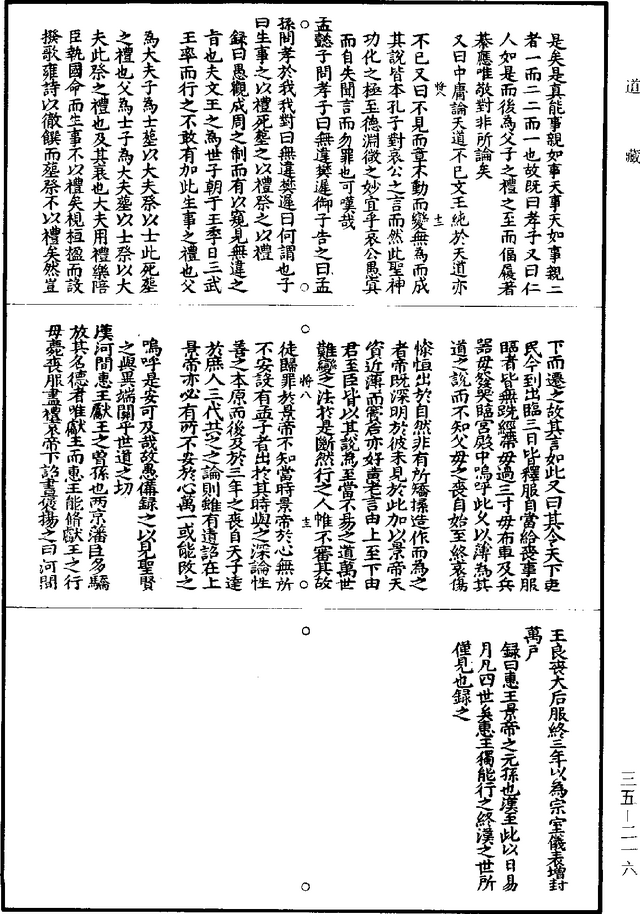 道藏
是矣是真能事親如事天事天如事親二
者一而二二而一也故既曰孝子又曰仁
人如是而後為父子之禮之至而偪屨著
綦應唯敬對非所論矣
又曰中庸論天道不已文王純於天道亦
不已又曰不見而章不動而變無為而成
其說皆本孔子對哀公之言而然此聖神
功化之極至德淵微之妙宜乎哀公愚冥
而自失聞言而勿罪也可嘆哉
孟懿子問孝子曰無違樊遲御子告之曰孟
孫問孝於我我對曰無違樊遲曰何謂也子
曰生事之以禮死塟之以禮祭之以禮
錄曰愚觀成周之制而有以窺見無違之
旨也夫文王之為世子朝于王季日三武
王率而行之不敢有加此生事之禮也父
為大夫子為士塟以大夫祭以士此死塟
之禮也父為士子為大夫塟以士祭以大
夫此祭之禮也及其衰也大夫用禮樂陪
臣執國命而生事不以禮矣視桓楹而設
撥歌雍詩以徹饌而塟祭不以禮矣然豈
下而遷之故其言如此又曰其令天下吏
民令到出臨三日皆釋服自當給喪事服
臨者皆無跣絰帶毋過三寸毋布車及兵
器毋發民哭臨宮殿中嗚呼此又以薄為其
道之說而不知父母之喪自始至終哀傷
慘怛出於自然非有所矯揉造作而為之
者帝既深明於彼未見於此加以景帝天
資近薄而竇后亦好黃老言由上至下由
君至臣皆以其說為至當不易之道萬世
難變之法於是斷然行之人惟不審其故
徒歸罪於景帝不知當時景帝於心無所
不安設有孟子者出於其時與之深論性
善之本原而後及於三年之喪自天子達
於庶人三代共之之論則雖有遺詔在上
景帝亦必有所不安於心萬一或能改之
嗚呼是安可及哉故愚備錄之以見聖賢
之與異端關乎世道之切
漢河間惠王獻王之曾孫也西京藩臣多驕
放其名德者唯獻王而惠王能脩獻王之行
母薨喪服盡禮哀帝下詔書褒揚之曰河間
王良喪太后服終三年以為宗室儀表增封
萬戶
錄曰惠王景帝之元孫也漢至此以日易
月凡四世矣惠王獨能行之終漢之世所
僅見也錄之
三五—二一六